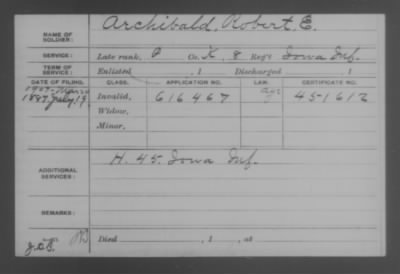 NAME OF SOLDIER: Archibald, Robert E.
SERVICE: Late rank, P Co. K, 8 Reg't Iowa Inf.
TERM OF SERVICE: Enlisted , 1 Discharged , 1
DATE OF FILING. CLASS. APPLICATION NO. LAW. CERTIFICATE NO.
1887 July 19 Invalid, 616467 451612
Widow,
Minor,
ADDITIONAL SERVICES: H. 45. Iowa Inf.
REMARKS:
Died , 1 , at